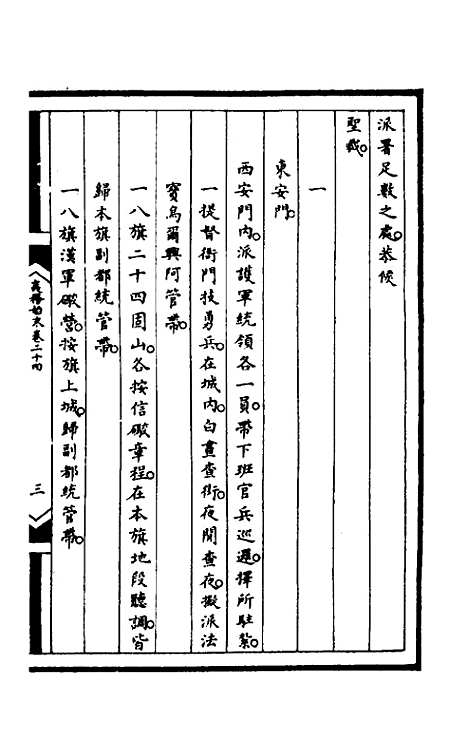 派署足數之處。恭候
聖裁。
一
東安門。
西安門內。派護軍統領各一員。帶下班官兵巡邏。擇所駐紮。
一提督衙門技勇兵。在城內。白晝查街。夜間查夜。擬派法
寶烏爾興阿管帶。
一八旗二十四固山。各按信礮章程。在本旗地段聽調。皆
歸本旗副都統管帶。
一八旗漢軍礮營。按旗上城。歸副都統管帶。
夷務始末卷二十四
三